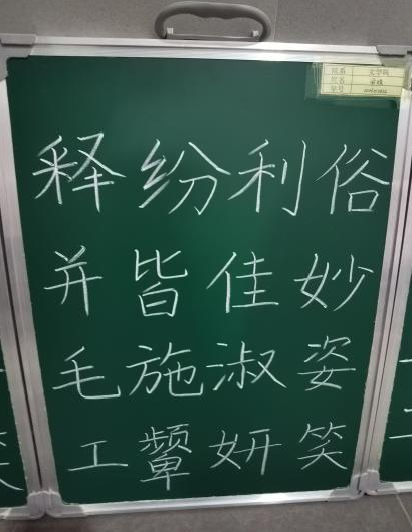 院系 文学院
姓名
学号
释纷利俗
并皆佳妙
毛施淑姿
工颦妍笑